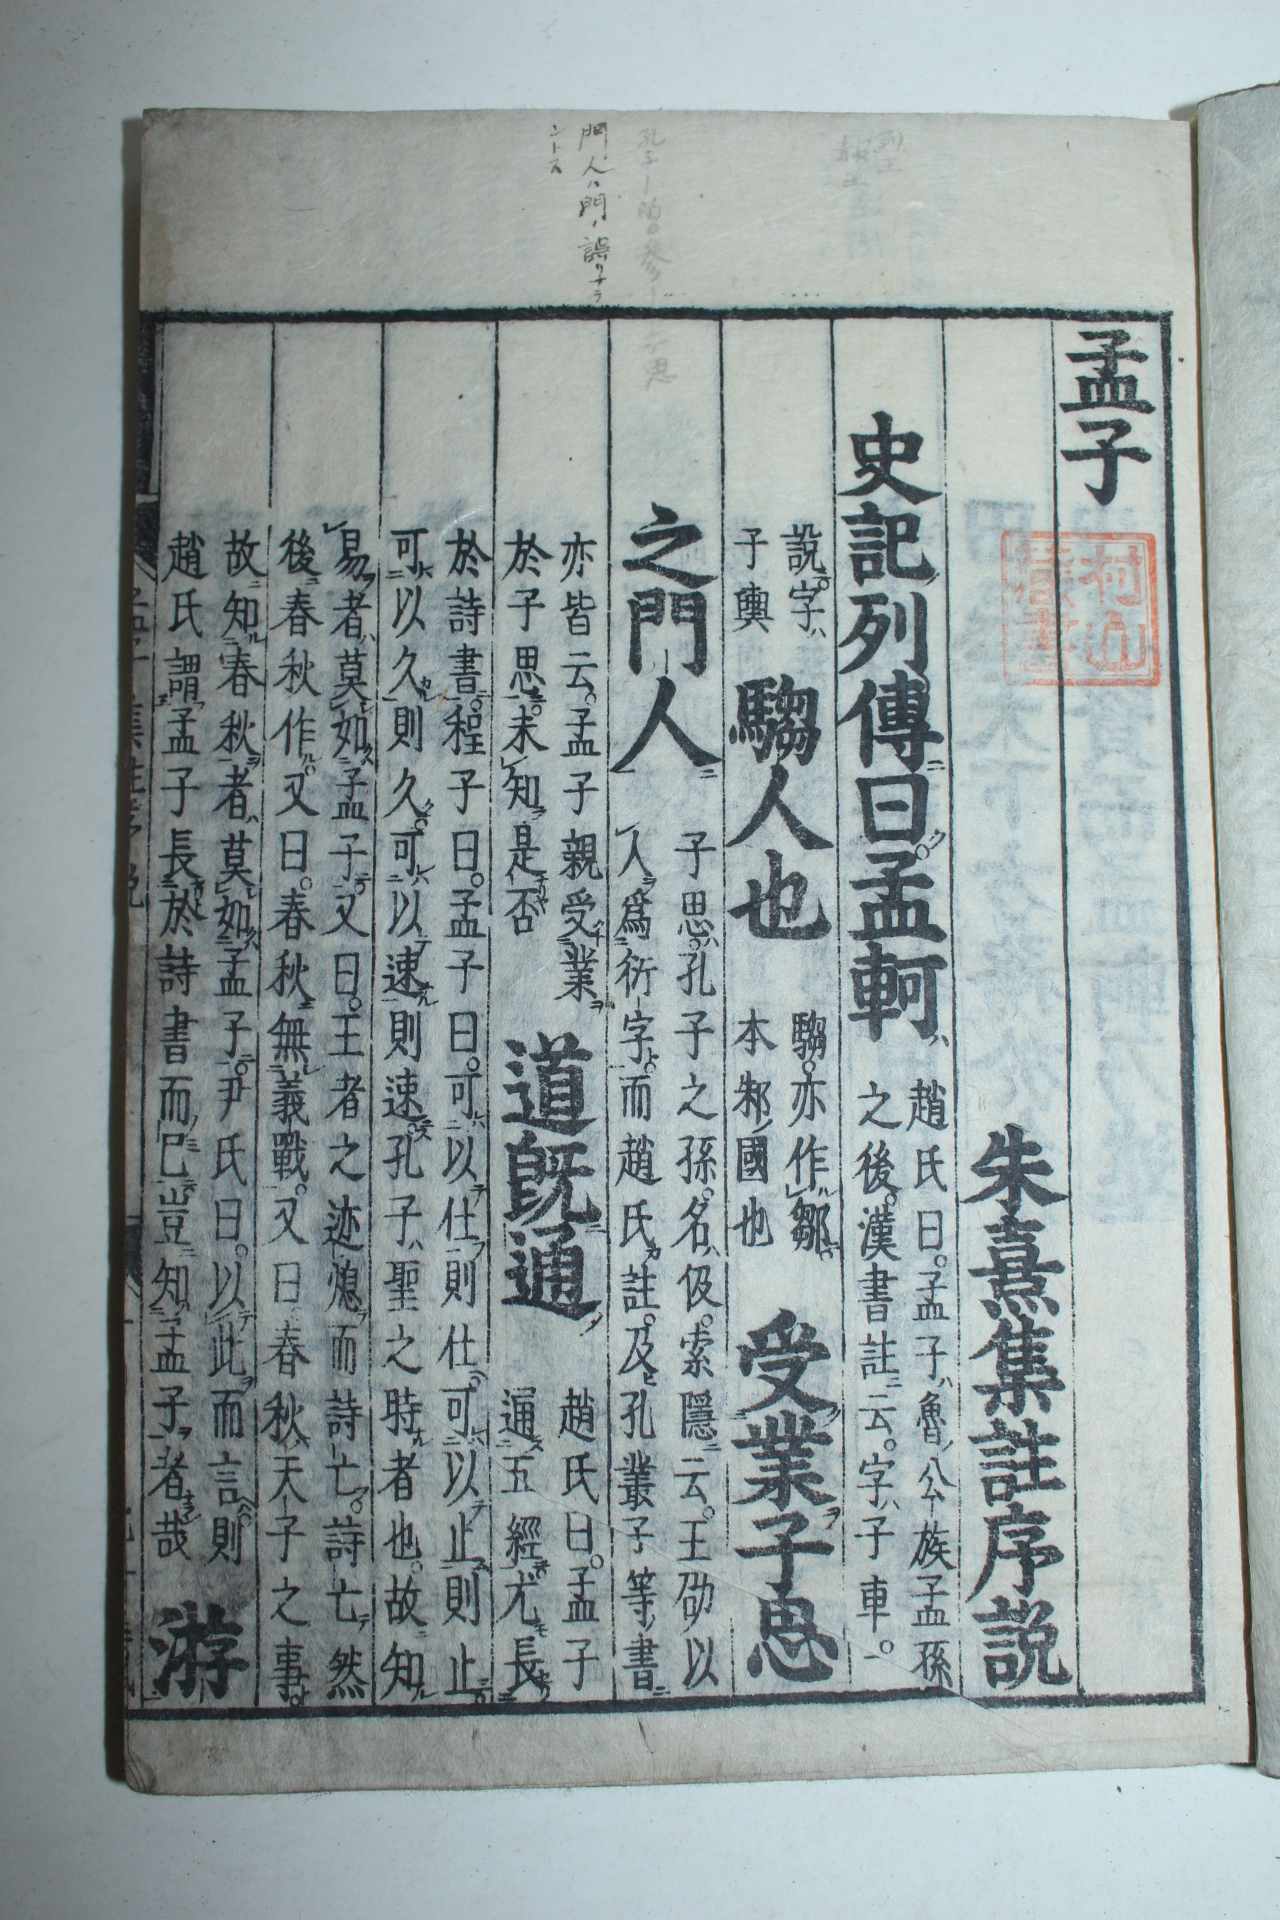 孟子
朱熹集註序說
史記列傳曰孟軻
趙氏曰孟子魯公族孟孫
之後漢書註云字子車一
說字
子輿
騶人也
騶亦作鄒
本邾國也
受業子思
之門人
子思孔子之孫名伋索隱云王劭以
人爲衍字而趙氏註及孔叢子等書
亦皆云孟子親受業
於子思未知是否
道旣通
趙氏曰孟子
通五經尤長
於詩書程子曰孟子曰可以仕則仕可以止則止
可以久則久可以速則速孔子聖之時者也故知
易者莫如孟子又曰王者之迹熄而詩亡詩亡然
後春秋作又曰春秋無義戰又曰春秋天子之事
故知春秋者莫如孟子尹氏曰以此而言則
趙氏謂孟子長於詩書而已豈知孟子者哉
游
門人ハ門ノ誤リナラ